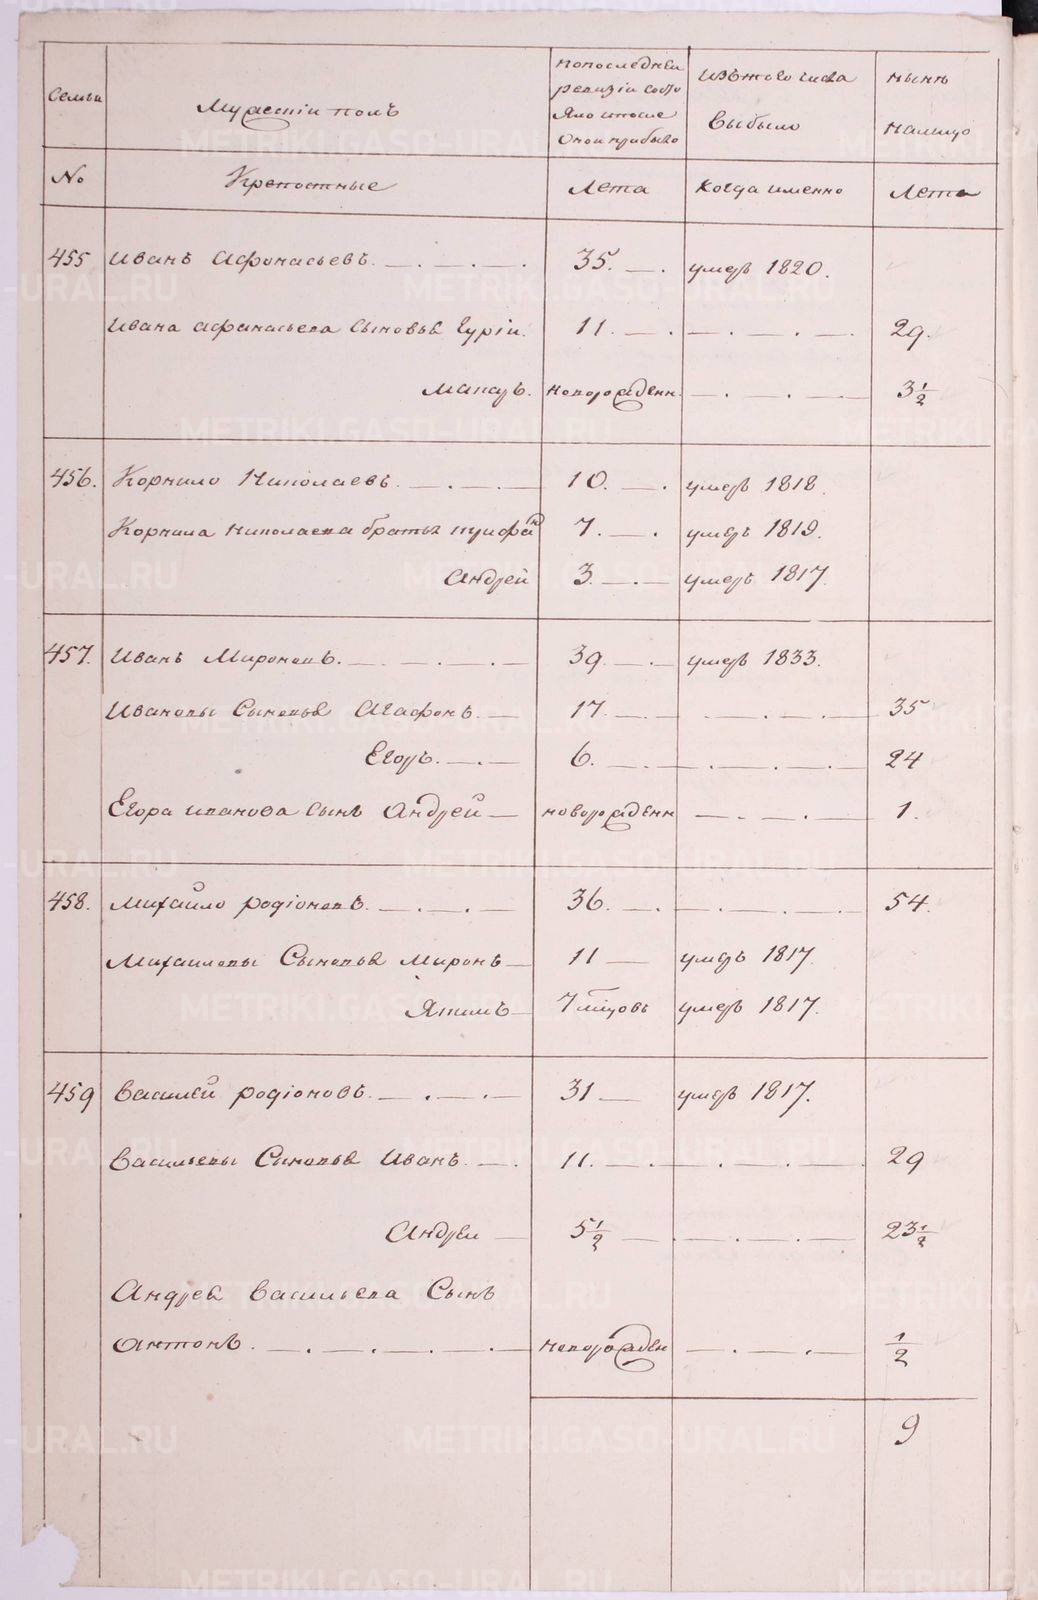 Семьи
Мужескій полъ
по последней
ревизіи состо
яло и после
оной прибыло
изъ того числа
выбыло
ныне
налицо
No
Крепостные
Лета
когда именно
Лета
455 Иванъ Афонасьевъ. 35. умеръ 1820.
Ивана афанасьева сыновья Гурій. 11. 29.
новорожденн. 3 1/2
456. Корнило Николаевъ. 10. умеръ 1818.
Корнила Николаева братья 7. умеръ 1819.
Андрей 3. умеръ 1817.
457. Иванъ Мироновъ. 39. умеръ 1833.
Ивановы Сыновья Агафонъ. 17. 35
Егоръ. 6. 24
Егора иванова сынъ Андрей новорожденн 1.
458. Михайло родіоновъ. 36. 54.
Михайловы Сыновья Миронъ 11 умеръ 1817.
Якимъ 7 умеръ 1817.
459 Василей родіоновъ. 31 умеръ 1817.
Васильевы Сыновья Иванъ. 11. 29
Андреи 5 1/2 23 1/2
Андрея васильева Сынъ
Антонъ. новорожден 1/2
9
METRIKI.GASO-URAL.RU